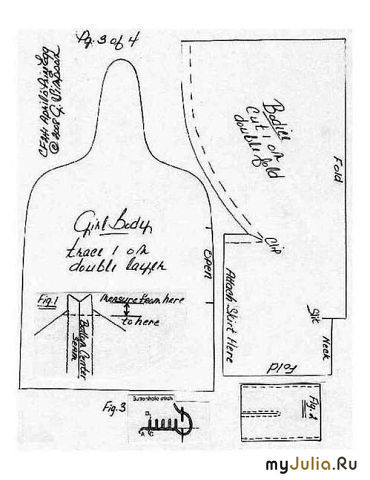 Pg. 3 of 4
Girl Body
trace 1 on
double layer
open
Fig. 1
Measure from here
to here
Bottom Center
Seam
Bodice
Cut 1 on
double fold
Fold
Clip
Attach Skirt Here
Slit
Neck
Fold
Fig. 3
Buttonhole stitch
B
A
C
Fig. 2
myJulia.Ru